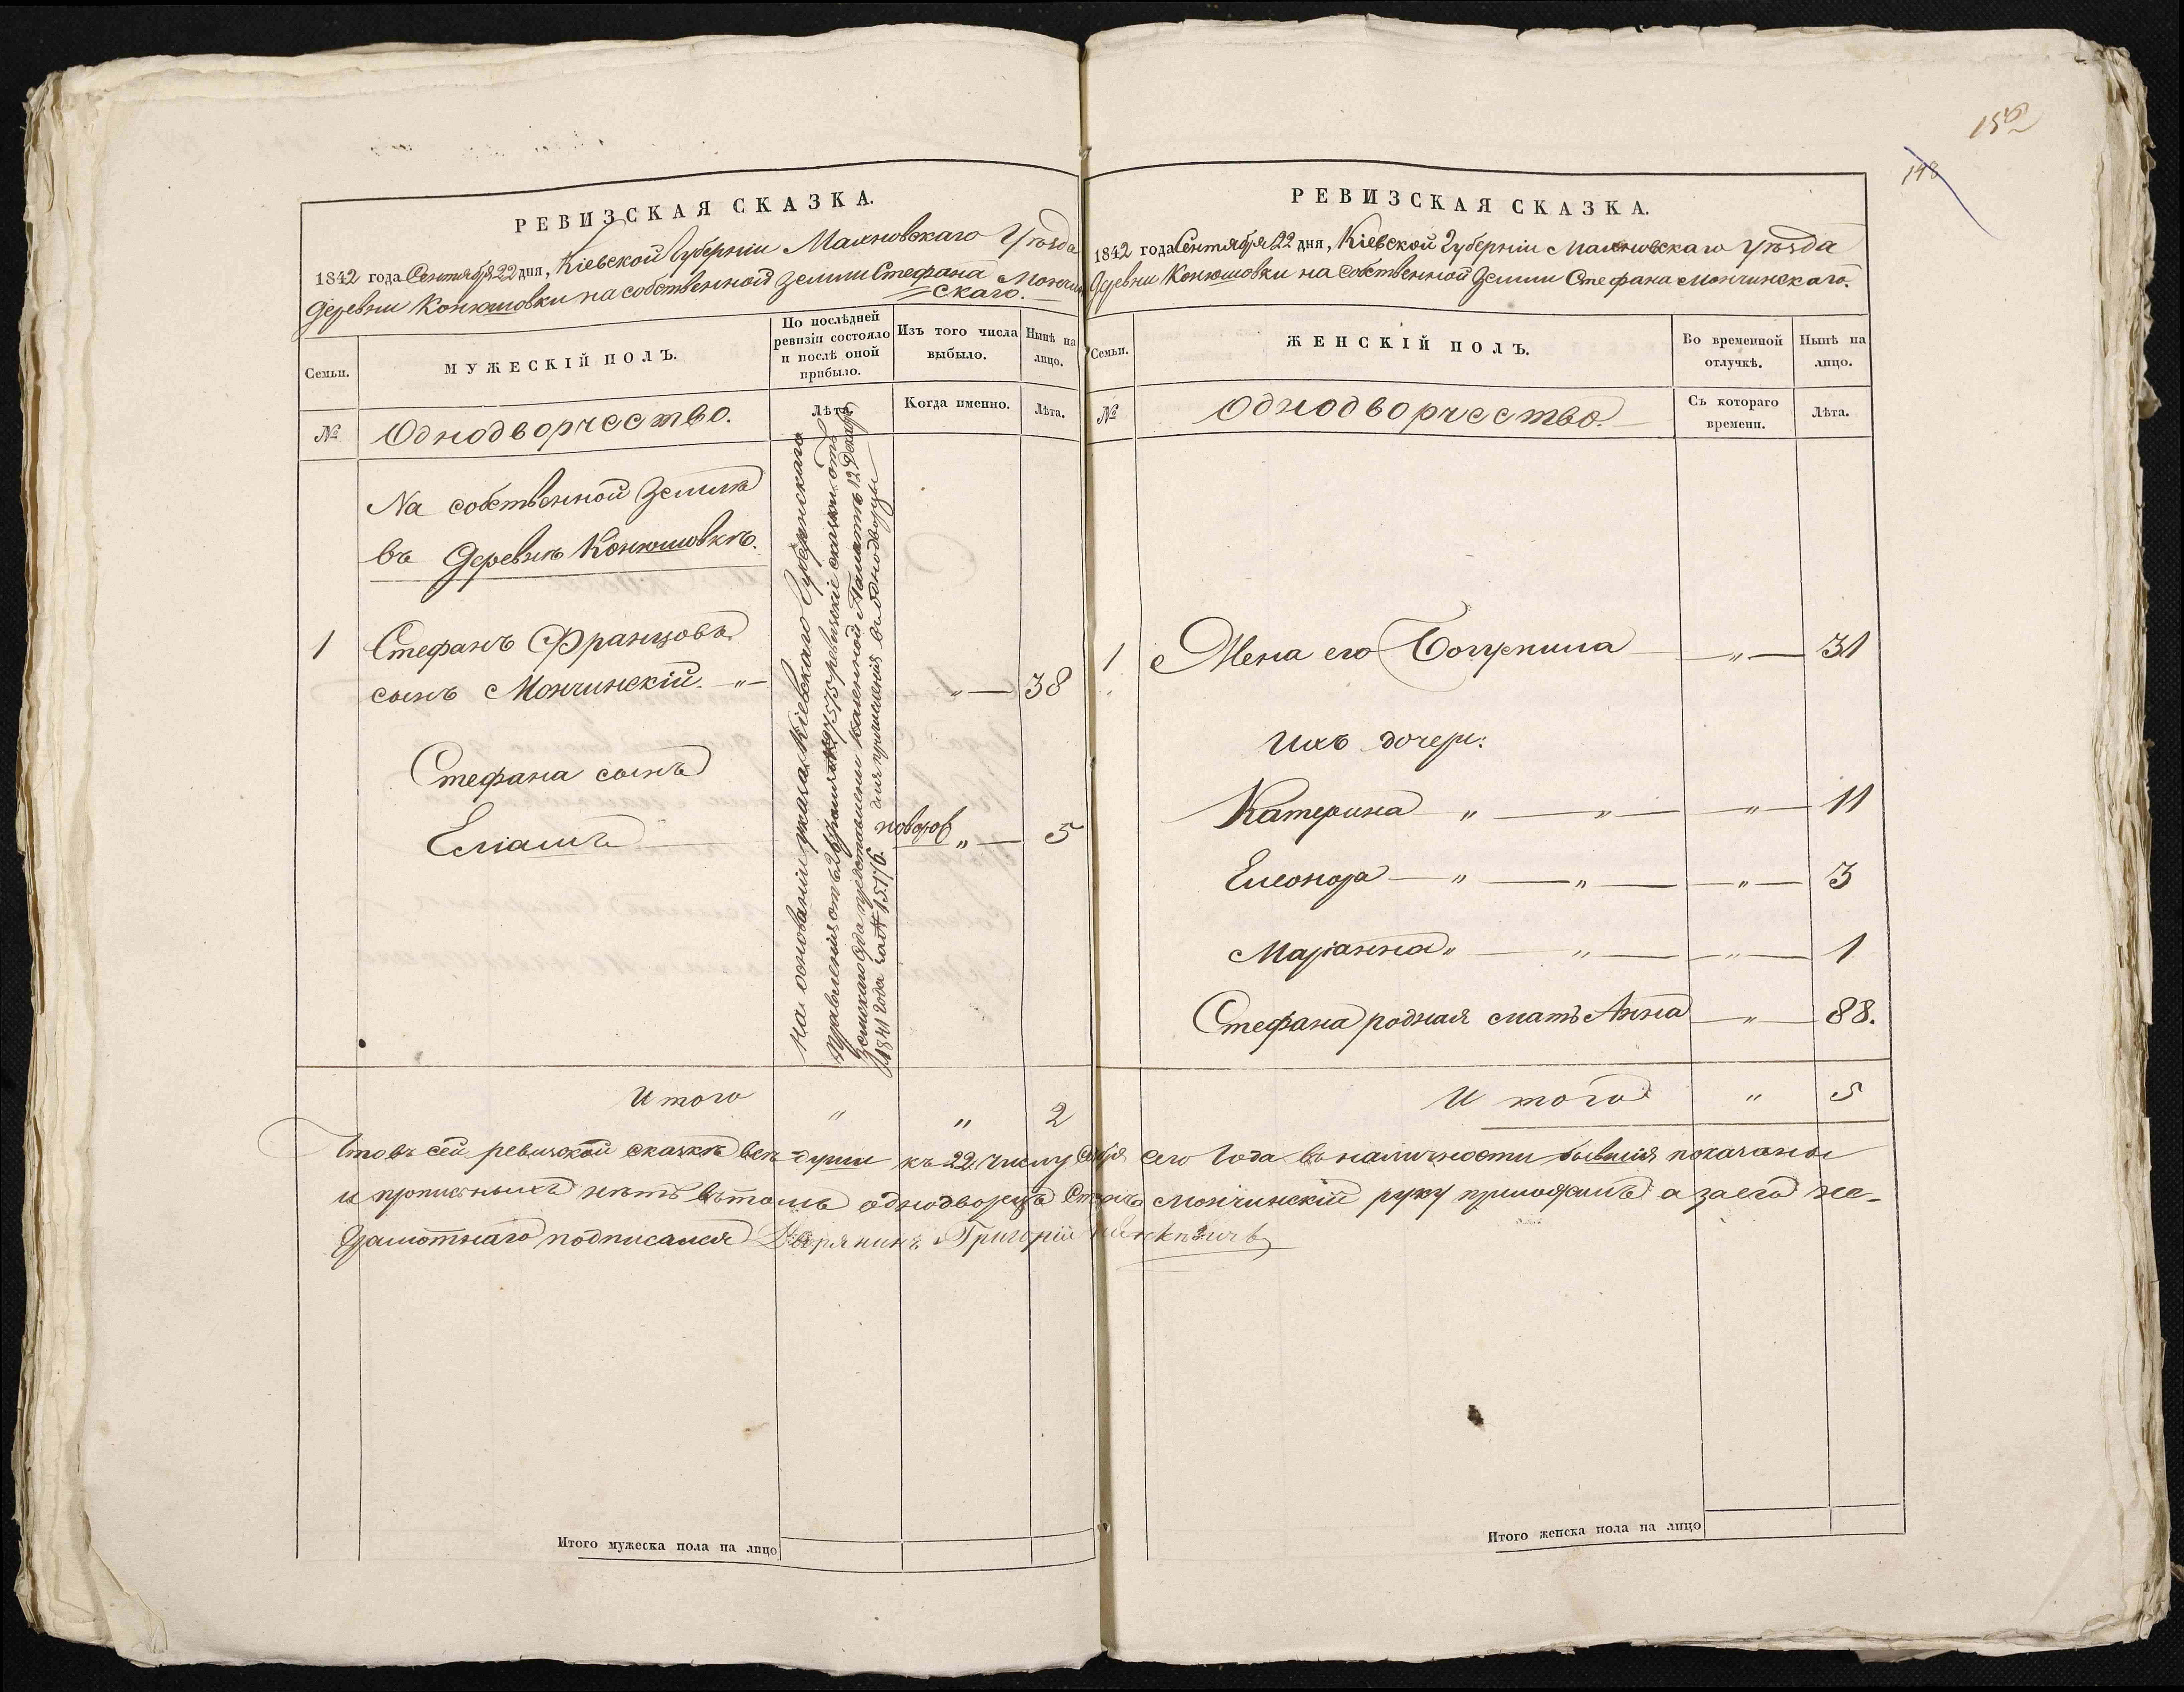 РЕВИЗСКАЯ СКАЗКА.
1842 года Сентября 22 дня, Кіевской Губерніи Махновскаго Уѣзда
Деревни Конюшовки на собственной Земли Стефана Мончин
скаго.
Семьи.
МУЖЕСКІЙ ПОЛЪ.
По послѣдней
ревизіи состояло
и послѣ оной
прибыло.
Изъ того числа
выбыло.
Нынѣ на
лицо.
№
Однодворчество.
Лѣта.
Когда именно.
Лѣта.
На собственной Землѣ
въ Деревнѣ Конюшовкѣ.
1 Стефанъ Францовъ
сынъ Мончинскій. „ — „ — 38
Стефана сынъ
Еліашъ новорож „ — 5
На основаніи указа Кіевскаго Губернскаго
Правленія отъ 26 ревизскіе сказки отъ
Земскаго Суда представлены Казенной Палатѣ 12 Декабря
1841 года за № 15176. для причисленія въ однодворцы
Итого „ „ 2
РЕВИЗСКАЯ СКАЗКА.
1842 года Сентября 22 дня, Кіевской Губерніи Махновскаго Уѣзда
Деревни Конюшовки на собственной Земли Стефана Мончинскаго.
Семьи.
ЖЕНСКІЙ ПОЛЪ.
Во временной
отлучкѣ.
Нынѣ на
лицо.
№
Однодворчество.
Съ котораго
времени.
Лѣта.
1 Жена его — „ — 31
Ихъ дочери:
Катерина „ — „ — „ — 11
Елеонора — „ — „ — „ — 3
Маріанна „ — „ — „ — 1
Стефана родная мать Анна — „ — 88.
Итого „ 5
Что въ сей ревизской сказкѣ всѣ души къ 22 числу Сентября сего Года въ наличности бывшія показаны
и прописныхъ нѣтъ въ томъ однодворецъ Стефанъ Мончинскій руку приложилъ а за его не-
грамотнаго подписался Дворянинъ Григорій
Итого мужеска пола на лицо
Итого женска пола на лицо
148